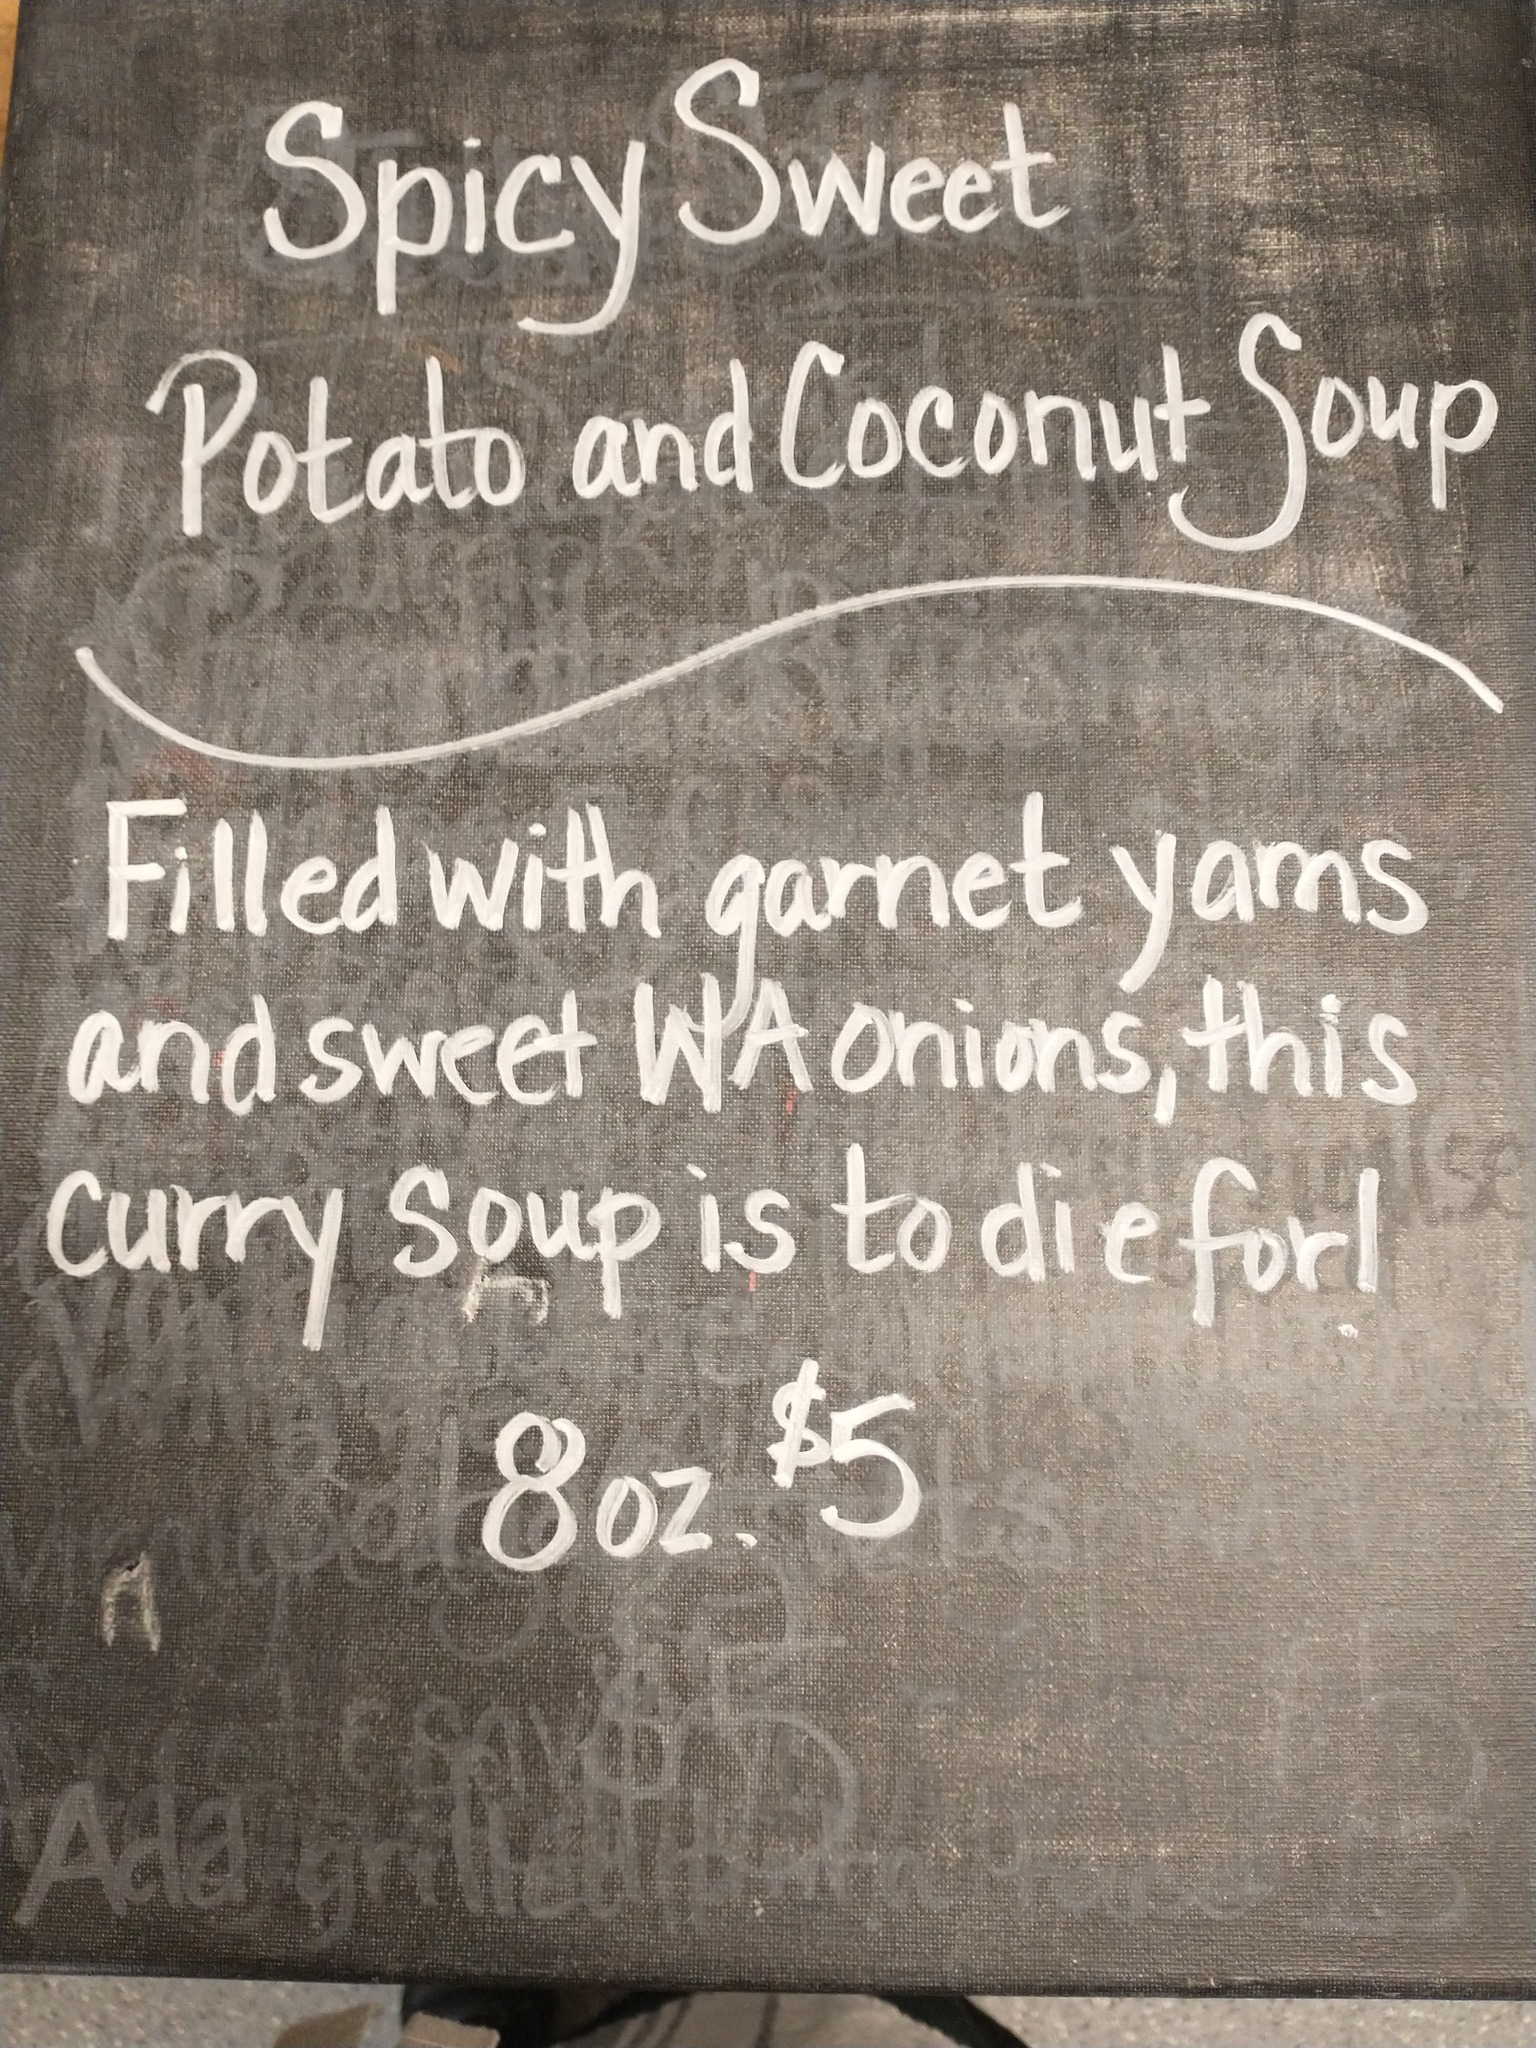 Spicy Sweet
Potato and Coconut Soup
Filled with garnet yams
and sweet WA onions, this
curry soup is to die for!
8oz. $5
Add grilled